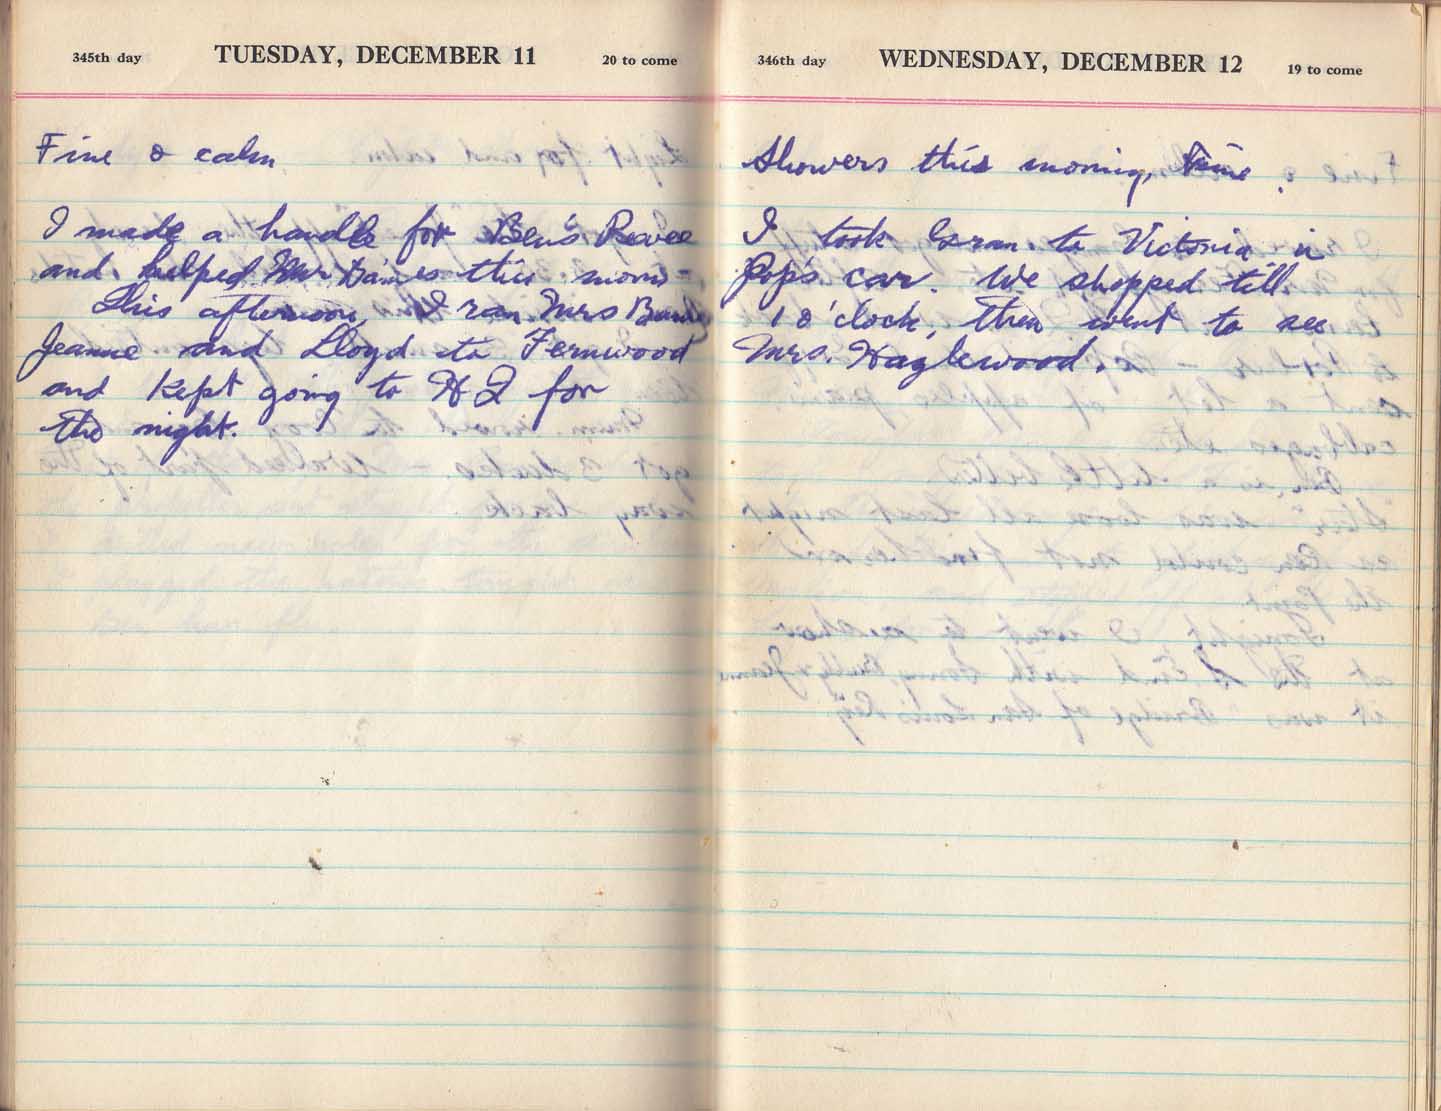 345th day TUESDAY, DECEMBER 11 20 to come
Fine & calm
I made a handle for Ben's
and helped Mr Daines this morn-
This afternoon, I ran Mrs
Jeanne and Lloyd to Fernwood
and kept going to HQ for
the night.
346th day WEDNESDAY, DECEMBER 12 19 to come
Showers this morning, Fine.
I took Gran. to Victoria in
Pop's car. We shopped till
1 o'clock, then went to see
Mrs. Haglewood.